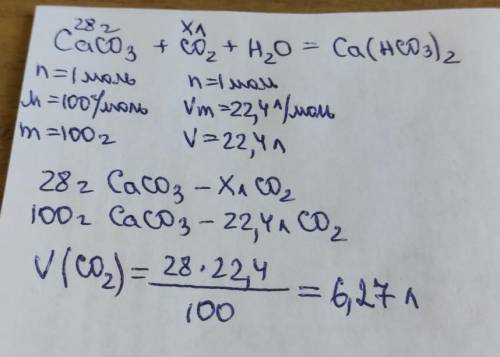 28г хл
CaCO3 + CO2 + H2O = Ca(HCO3)2
n=1моль n=1моль
M=100г/моль Vm=22,4л/моль
m=100г V=22,4л
28г CaCO3 - Xл CO2
100г CaCO3 - 22,4л CO2
V(CO2) = 28·22,4 / 100 = 6,27л